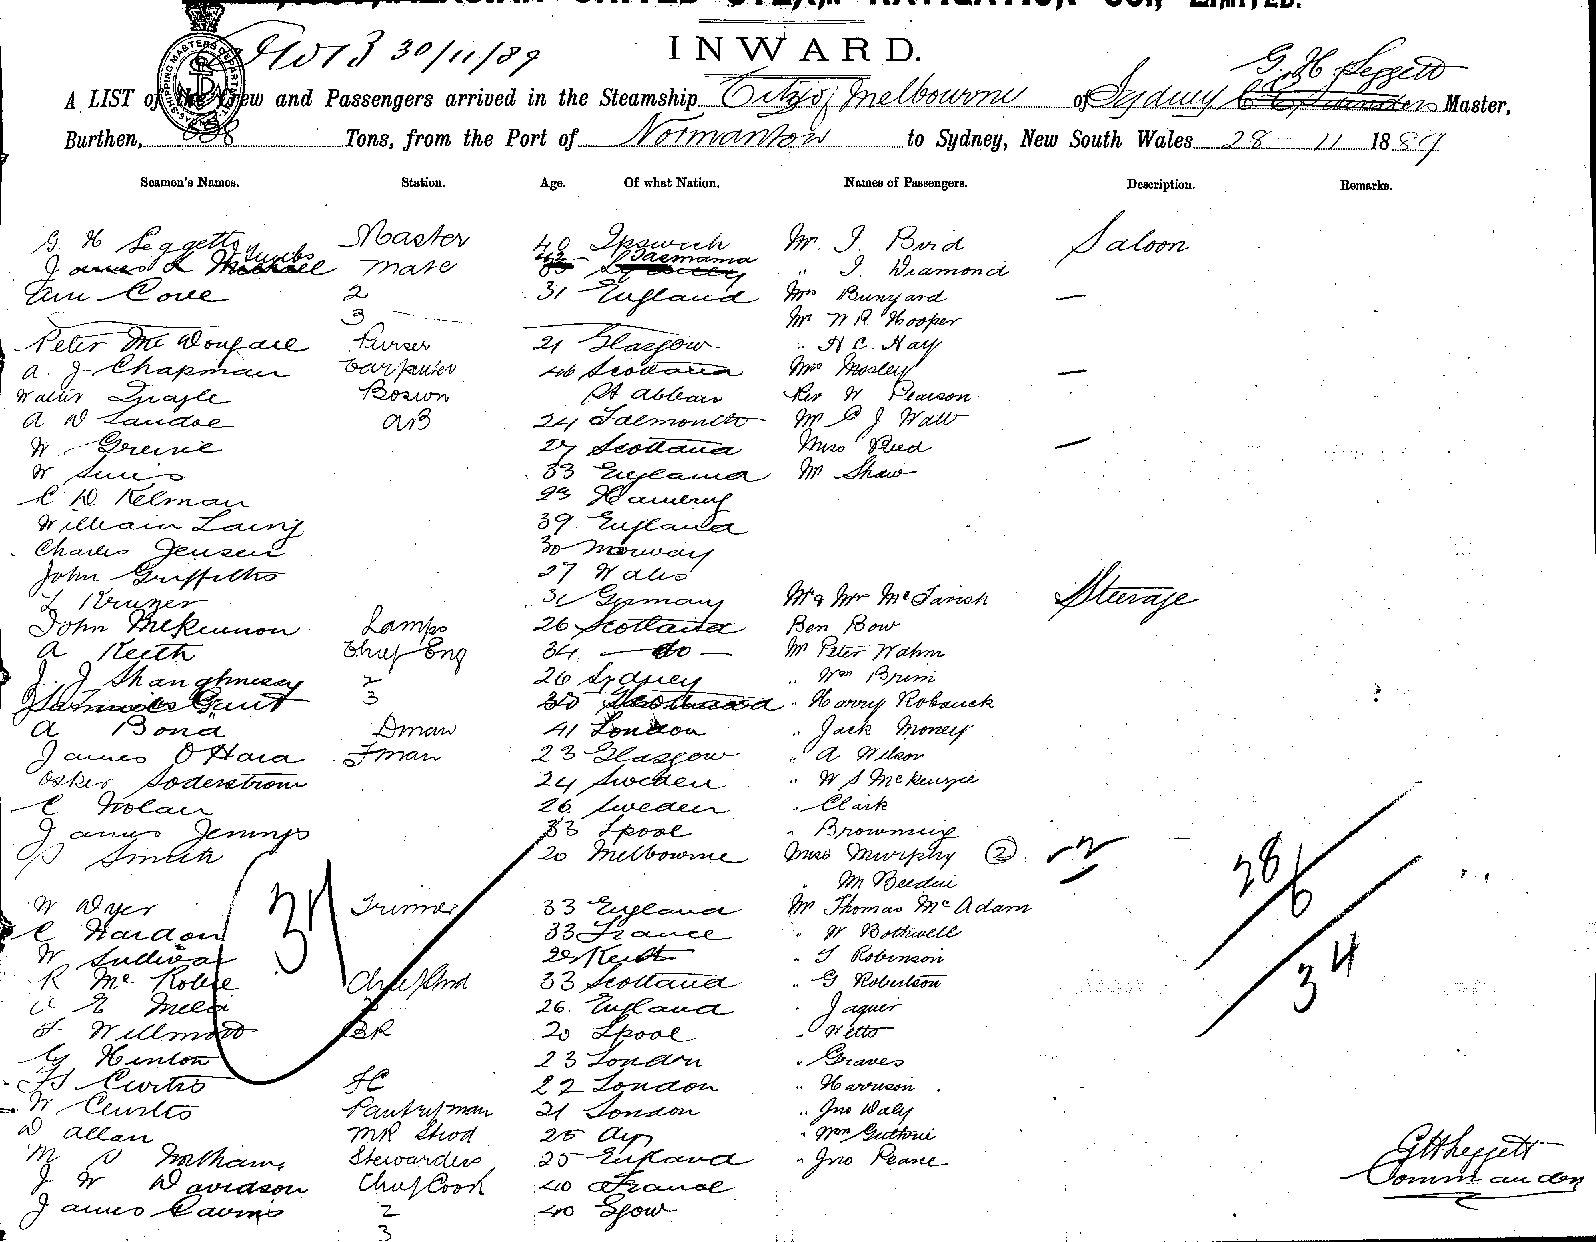 UNITED STEAM NAVIGATION CO., LIMITED.
INWARD.
30/11/89
G. H. Leggett
A LIST of the Crew and Passengers arrived in the Steamship City of Melbourne of Sydney Master,
Burthen, Tons, from the Port of Normanton to Sydney, New South Wales 28 11 1889
Seamen's Names. Station. Age. Of what Nation. Names of Passengers. Description. Remarks.
G. H Leggett Master 40 Ipswich Mr. J. Bird Saloon
James Mate Tasmania " J. Diamond
Cove 2 31 England Mrs Bunyard —
3 Mr W R Hooper
Peter McDougall Purser 21 Glasgow " H C. Hay
A. J. Chapman Carpenter 40 Scotland Mrs Mosley —
Walter Quayle Bosun St Abbens Rev W Pearson
A W AB 24 Falmouth Mr C J Watt
W Greive 27 Scotland Miss Reed —
W 33 England Mr Shaw
C W. Kelman 23
William Laing 39 England
Charles Jensen 30 Norway
John Griffiths 27 Wales
L Kruger 31 Germany Mr & Mrs McTavish Steerage
John McKinnon Lamps 26 Scotland Ben Bow
A Keith Chief Eng 34 — do — Mr Peter Wahm
J. J Shaughnessy 2 26 Sydney " Wm Brim
Gunt 3 30 Scotland " Harry Roback
A Bond Dman 41 London " Jack Money
James O'Hara Fman 23 Glasgow " A Wilson
Osker Soderstrom 24 Sweden " W S McKenzie
C Nolan 26 Sweden " Clark
James Jennings 33 Lpool " Browning
Smith 20 Melbourne Miss Murphy (2) 2
" M
W Dyer Trimmer 33 England Mr Thomas McAdam
C Hardon 33 France " W Bothwell
W 28 Keith " J Robinson
R McRobie Chief Stwd 33 Scotland " G Robertson
E 2 26 England " Jaques
Willmott BR 20 Lpool "
G Hinton 23 London " Graves
Curtis FC 22 London " Harrison
W Curtis Pantryman 21 London " Jno Waly
W Allan MR Stwd 25 Ayr " Wm Guthrie
M Stewardess 25 England " Jno Pearce
J W Davidson Chief Cook 40 France
James 2 40 Ggow
3
31
28
6
34
G H Leggett
Commander